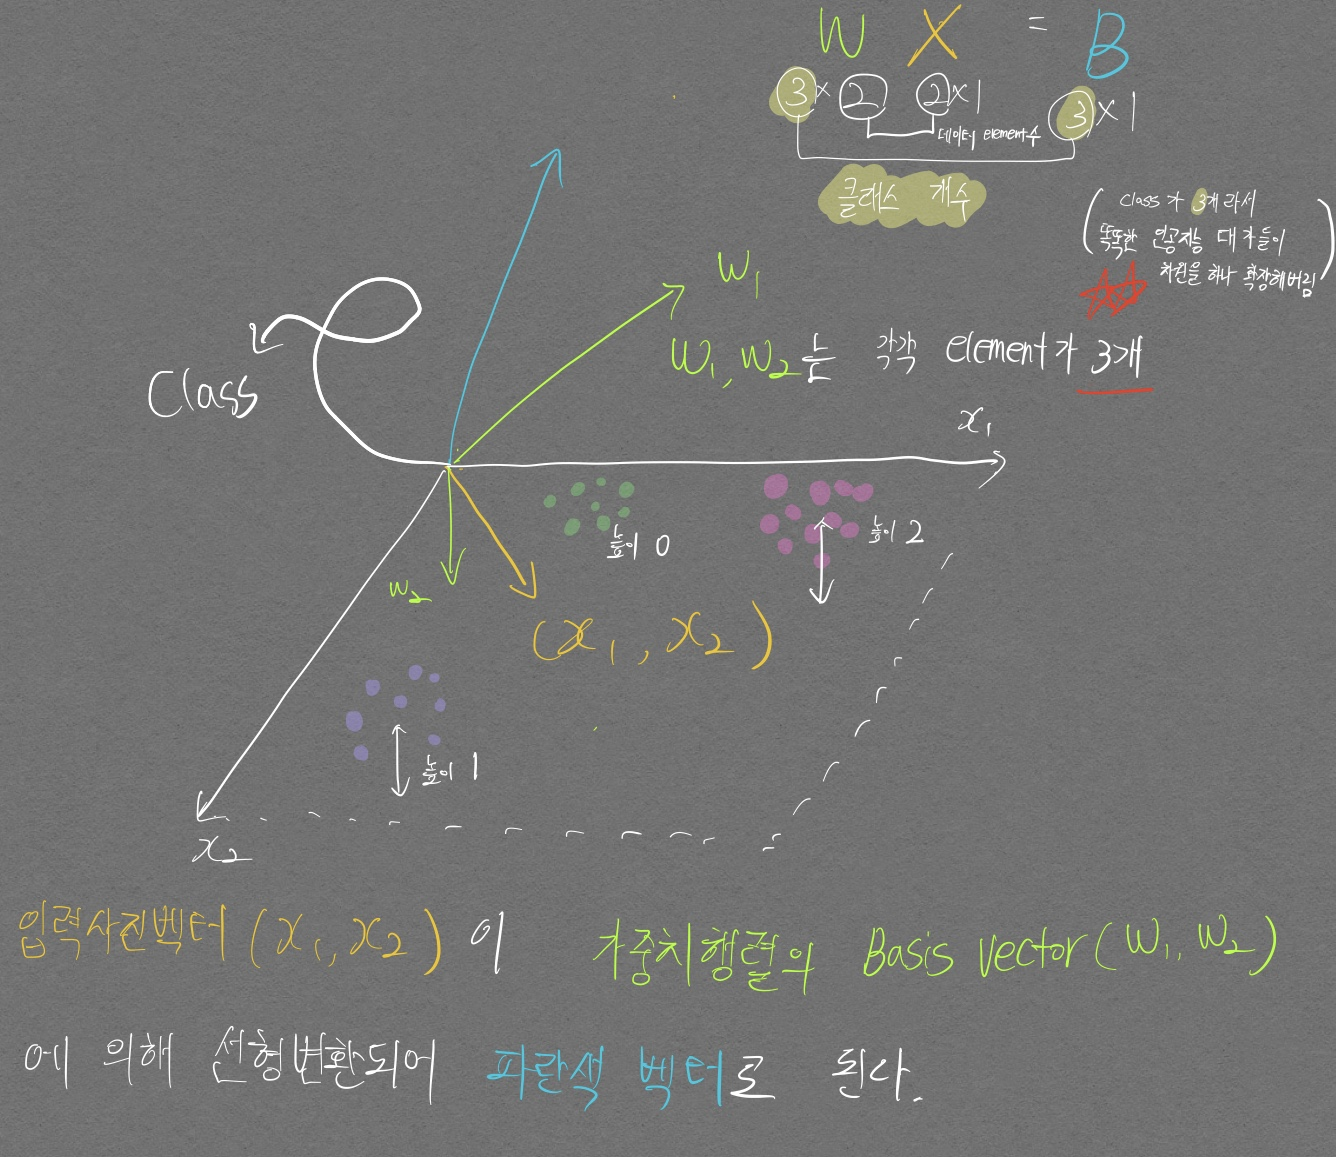 W X = B
3 × 2 2 × 1 3 × 1
데이터 element수
클래스 개수
( Class가 3개라서
똑똑한 인공지능 대가들이
차원을 하나 확장해버림 )
W₁
W₁, W₂는 각각 element가 3개
Class
x₁
높이 0
높이 2
W₂
(x₁, x₂)
높이 1
x₂
입력사진벡터 (x₁, x₂) 이 가중치행렬의 Basis vector (W₁, W₂)
에 의해 선형변환되어 파란색 벡터로 된다.